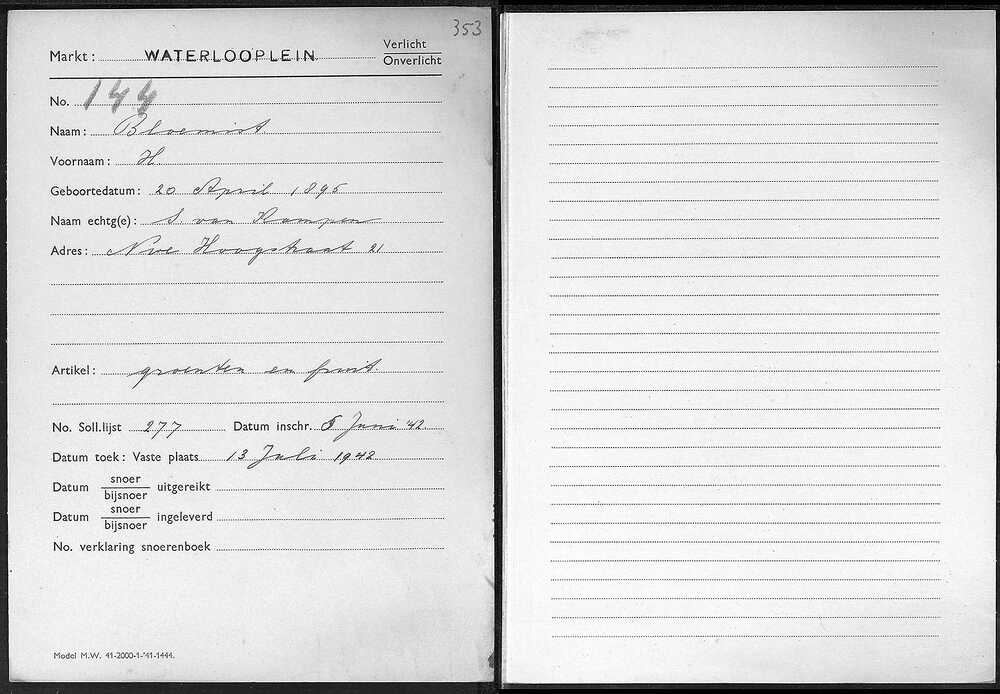 353
Markt: WATERLOOPLEIN. Verlicht
Onverlicht
No. 144
Naam: Bloemist
Voornaam: H.
Geboortedatum: 20 April 1895
Naam echtg(e): S. van Kampen
Adres: Nwe Hoogstraat 21
Artikel: groenten en fruit.
No. Soll.lijst 277 Datum inschr. 5 Juni '42.
Datum toek: Vaste plaats 13 Juli 1942
Datum snoer
bijsnoer uitgereikt
Datum snoer
bijsnoer ingeleverd
No. verklaring snoerenboek
Model M.W. 41-2000-1-'41-1444.